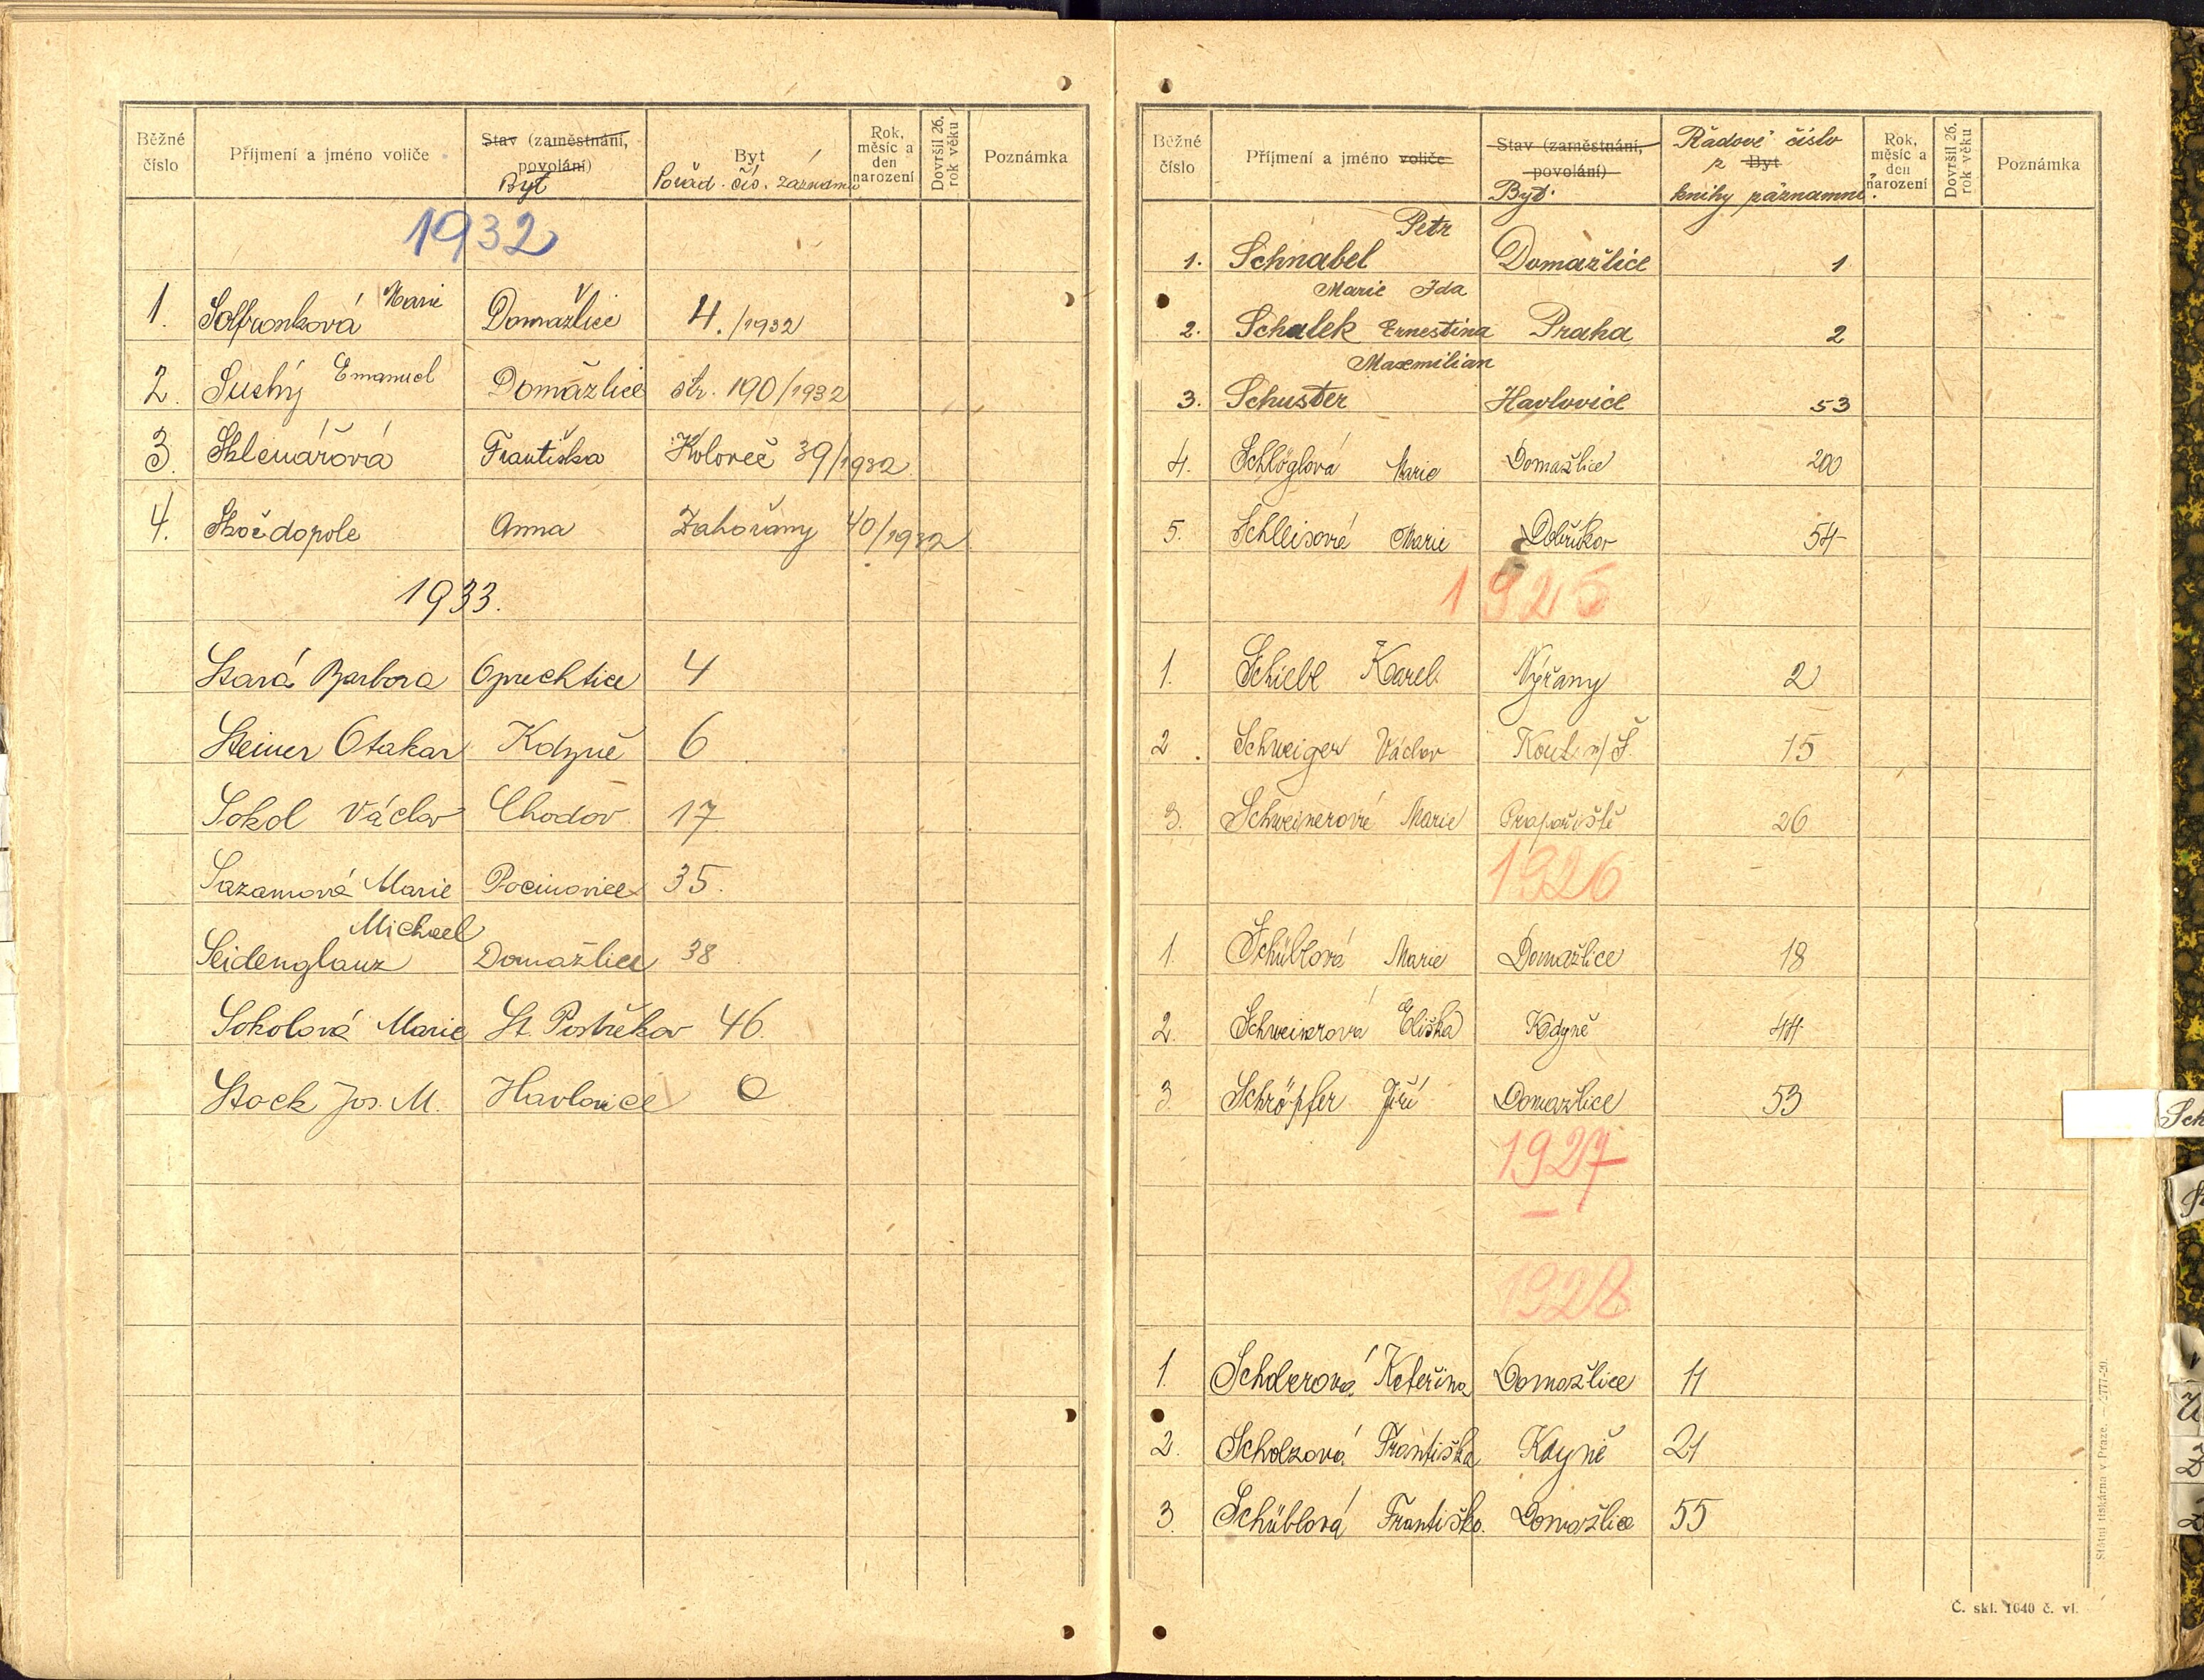 Běžné číslo | Příjmení a jméno voliče | Stav (zaměstnání, povolání) Byt | Byt Pořad. čís. záznamu | Rok, měsíc a den narození | Dovršil 26. rok věku | Poznámka
1932
Marie
1. Solfronková Domažlice 4./1932
2. Suchý Emanuel Domažlice str. 190/1932
3. Sklenářová Františka Koloveč 39/1932
4. Skočdopole Anna Zahořany 40/1932
1933.
Stará Barbora Oprechtice 4
Steiner Otakar Kdyně 6
Sokol Václav Chodov 17
Sazamová Marie Pocinovice 35.
Michael
Seidenglanz Domažlice 38
Sokolová Marie St. Postřekov 46.
Stock Jos. M. Havlovice 0
Běžné číslo | Příjmení a jméno voliče | Stav (zaměstnání, povolání) Byt. | Řadové číslo z Byt knihy záznamní. | Rok, měsíc a den narození | Dovršil 26. rok věku | Poznámka
Petr
1. Schnabel Domažlice 1
Marie Ida
2. Schalek Ernestina Praha 2
Maxmilian
3. Schuster Havlovice 53
4. Schlöglová Marie Domažlice 200
5. Schleisová Marie 54
1925
1. Schiebl Karel. Nýřany 2
2. Schweiger Václav Kout n/Š. 15
3. Schweinerová Marie Prapořiště 26
1926
1. Schüblová Marie Domažlice 18
2. Schweinerová Eliška Kdyně 44
3. Schröpfer Jiří Domažlice 53
1927
—
1928
1. Schderová Kateřina Domažlice 11
2. Scholzová Františka Kdyně 21
3. Schüblová Františka. Domažlice 55
Sch
Státní tiskárna v Praze. — 2777-20.
Č. skl. 1640 č. vl.